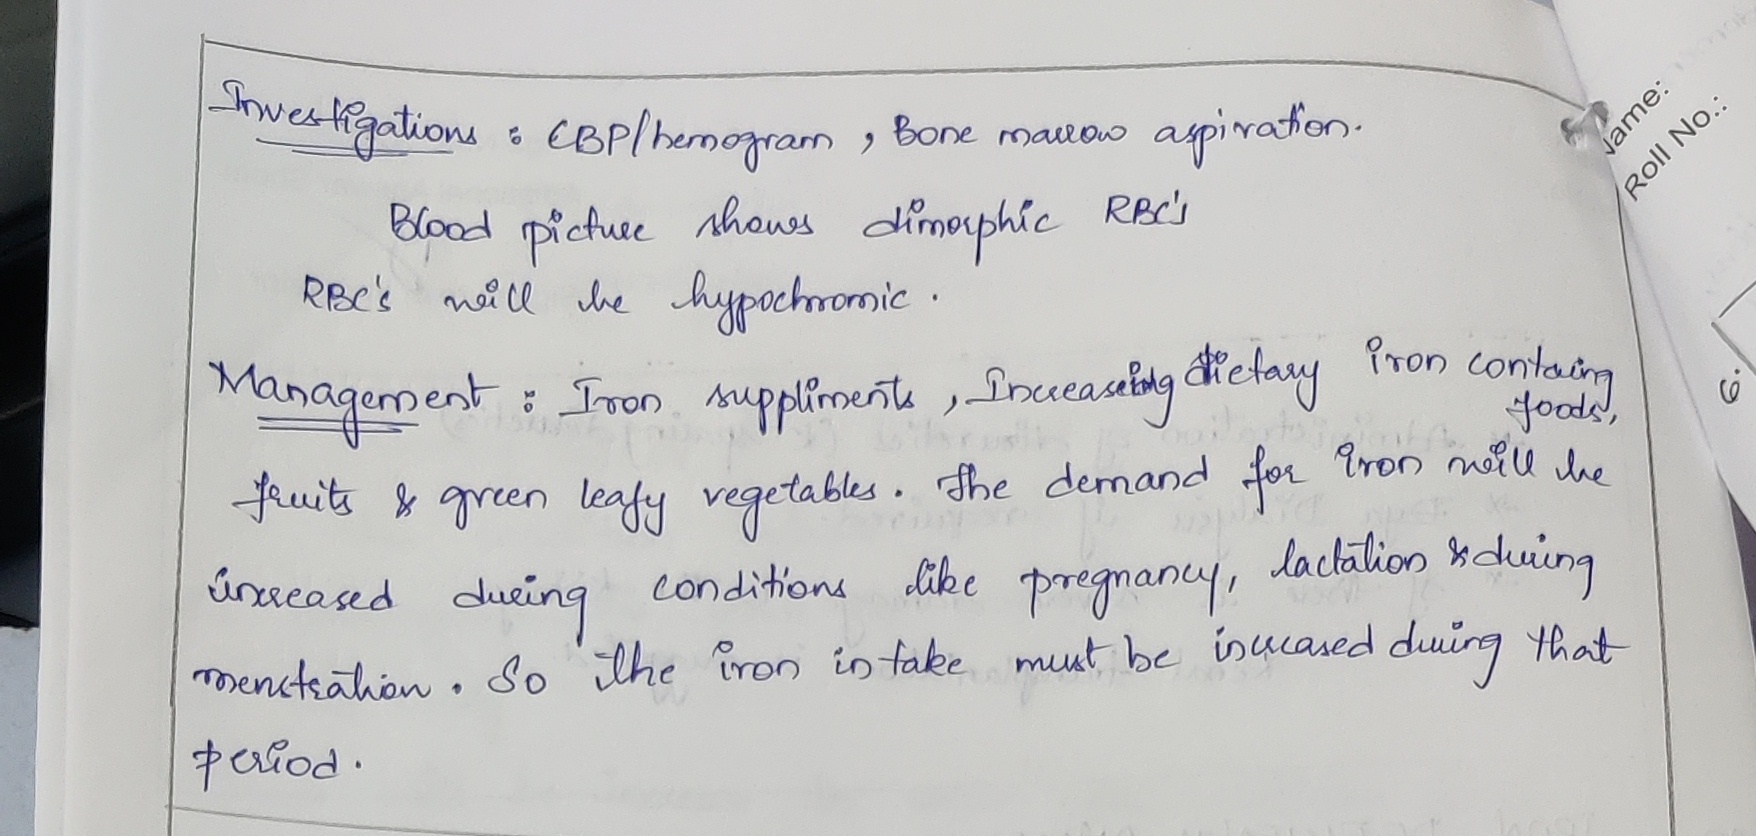 Investigations : CBP/hemogram, Bone marrow aspiration.
Blood picture shows dimorphic RBC's
RBC's will be hypochromic.
Management : Iron suppliments, Increasing dietary iron containg
foods,
fruits & green leafy vegetables. The demand for iron will be
increased during conditions like pregnancy, lactation & during
menstration. So the iron intake must be increased during that
period.
Name:
Roll No.:
6.